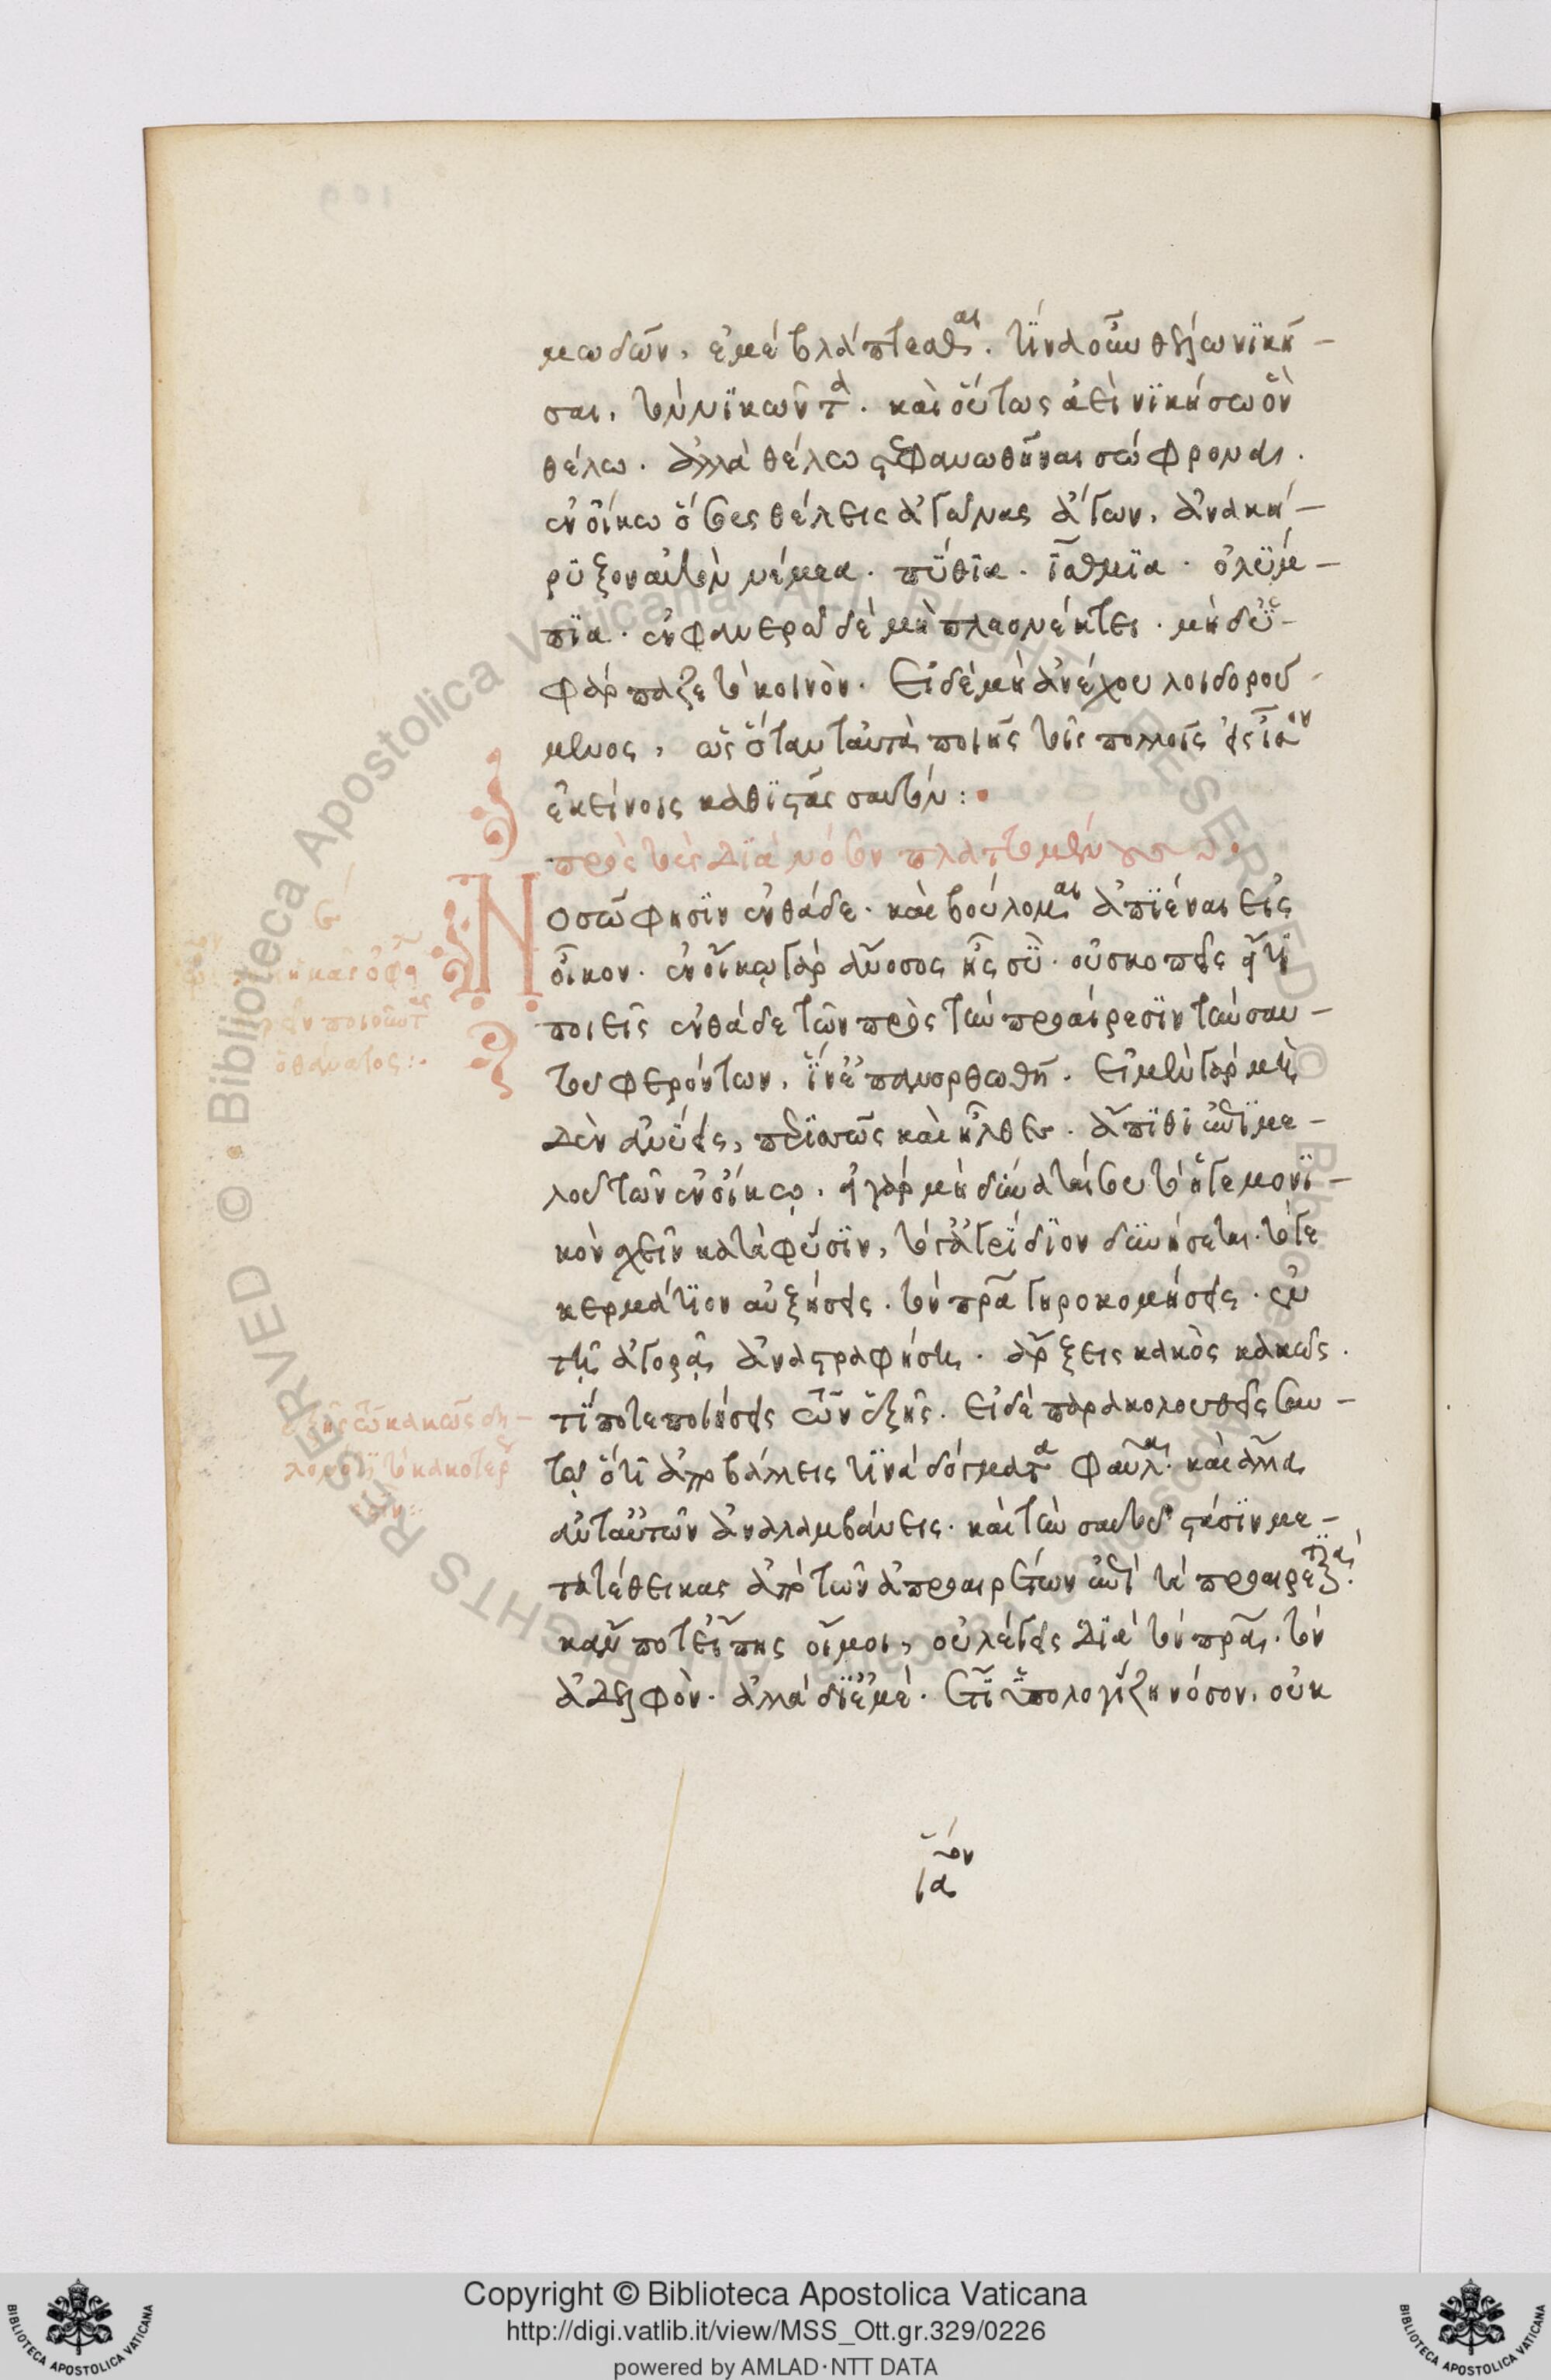 μωδῶν, ἐμὲ βλάπτεσθαι. τίνα οὖν θέλω νικῆ–
σαι, τὸν νικῶντα. καὶ οὕτως ἀεὶ νικήσω ὃν
θέλω. ἀλλὰ θέλω στεφανωθῆναι σώφρονας.
ἐν οἴκω ὅσους θέλεις ἀγῶνας ἄγων, ἀνακή–
ρυξον αὐτὸν νέμεα. πύθια. ἴσθμια. ὀλύμ–
πια. ἐν φανερῶ δὲ μὴ πλεονέκτει. μηδ' ὑ–
φάρπαζε τὸ κοινὸν. Εἰ δὲ μὴ ἀνέχου λοιδορού–
μενος, ὡς ὅταν ταῦτα ποιῆς τοῖς πολλοῖς εἰς ἴσον
ἐκείνοις καθιστᾶς σαυτόν:
πρὸς τοὺς διὰ νόσον πλαττομένους
Νοσῶ φησὶν ἐνθάδε. καὶ βούλομαι ἀπιέναι εἰς
οἶκον. ἐν οἴκῳ γὰρ ἄνοσος ἦς σύ. οὐ σκοπεῖς εἴ τι
ποιεῖς ἐνθάδε τῶν πρὸς τὴν προαίρεσιν τὴν σαυ–
τοῦ φερόντων, ἵν' ἐπανορθωθῆ. Εἰ μὲν γὰρ μη
δὲν ἀνύεις, περισσῶς καὶ ἦλθες. ἄπιθι ἐπιμε–
λοῦ τῶν ἐν οἴκῳ. εἰ γὰρ μὴ δύναταί σου τὸ ἡγεμονι–
κὸν σχεῖν κατὰ φύσιν, τό γ' ἀγρίδιον δυνήσεται. τό γε
κερμάτιον αὐξήσεις. τὸν πατέρα γηροκομήσεις. ἐν
τῇ ἀγορᾷ ἀναστραφήσῃ. ἄρξεις κακὸς κακῶς.
τί ποτε ποιήσεις τῶν ἑξῆς. Εἰ δὲ παρακολουθεῖς σαυ–
τῷ ὅτι ἀποβάλλεις τινὰ δόγματα φαῦλα. καὶ ἄλλα
ἀντ' αὐτῶν ἀναλαμβάνεις. καὶ τὴν σαυτοῦ στάσιν με–
τατέθεικας ἀπὸ τῶν ἀπροαιρέτων ἐπὶ τὰ προαιρετικά.
κἄν ποτ' εἴπῃς οἴμοι, οὐ λέγεις διὰ τὸν πατέρα. τὸν
ἀδελφὸν. ἀλλὰ δι' ἐμέ. ἔτι ὑπολογίζῃ νόσον, οὐκ
ὁ θάνατος: